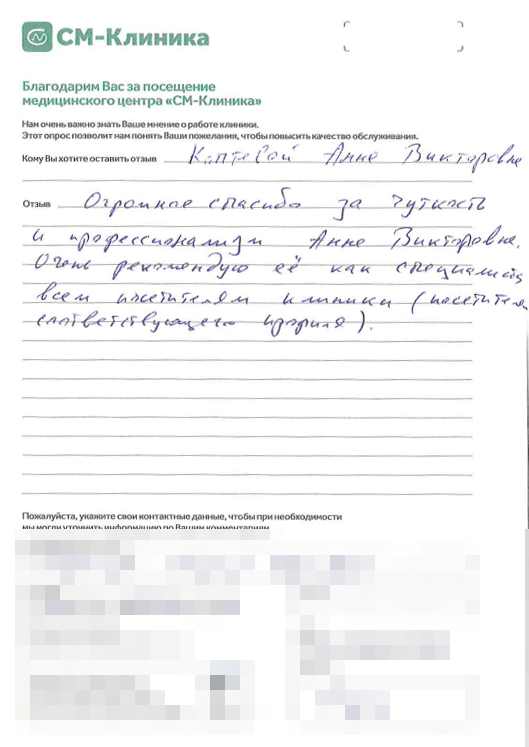 СМ-Клиника
Благодарим Вас за посещение
медицинского центра «СМ-Клиника»
Нам очень важно знать Ваше мнение о работе клиники.
Этот опрос позволит нам понять Ваши пожелания, чтобы повысить качество обслуживания.
Кому Вы хотите оставить отзыв Коптевой Анне Викторовне
Отзыв Огромное спасибо за чуткость
и профессионализм Анне Викторовне.
Очень рекомендую её как специалиста
всем посетителям клиники (посетителям
соответствующего профиля).
Пожалуйста, укажите свои контактные данные, чтобы при необходимости
мы могли уточнить информацию по Вашим комментариям